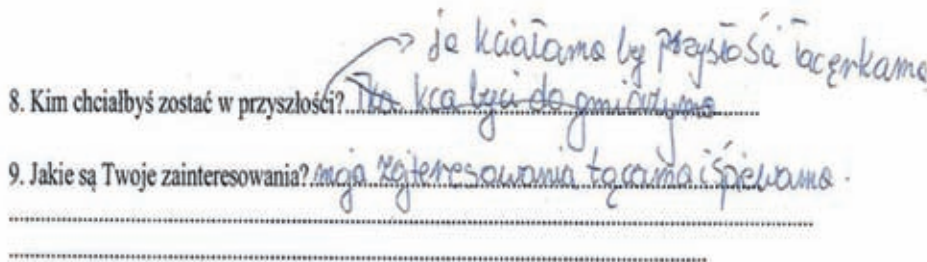 ja kciałama by przysłośći tacerkama
8. Kim chciałbyś zostać w przyszłości? kca byci do gmiazyma
9. Jakie są Twoje zainteresowania? moja zajteresowania tącama i śpiewama.